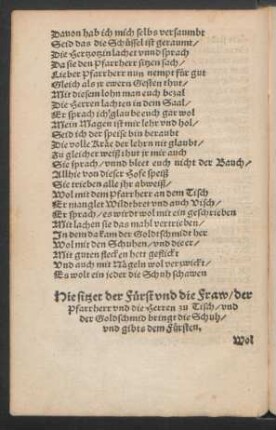 Davon hab ich mich selbs versaumbt
Seid das die Schüssel ist geraumt/
Die Hertzogin lachet vnnd sprach
Da sie den Pfarrherr sitzen sach/
Lieber Pfarrherr nun nempt für gut
Gleich als jr ewern Gesten thut/
Mit diesem lohn man euch bezal
Die Herren lachten in dem Saal/
Er sprach ich glaube euch gar wol
Mein Magen ist mir lehr vnd hol/
Seid ich der speise bin beraubt
Die volle Kräe der lehrn nit glaubt/
Zu gleicher weiß thut jr mir auch
Sie sprach/ vnnd bleet euch nicht der Bauch/
Allhie von dieser Hofe speiß
Sie trieben alle jhr abweiß/
Wol mit dem Pfarrherr an dem Tisch
Er mangler Wildtbret vnd auch Visch/
Er sprach/ es wirdt wol mit ein geschrieben
Mit lachen sie das mahl vertrieben/
In dem da kam der Goldtschmidt her
Wol mit den Schuhen/ vnd die er/
Mit guten flecken hett geflickt
Vnd auch mit Nägeln wol verzwickt/
Es wolt ein jeder die Schuh schawen
Hie sitzet der Fürst vnd die Fraw/ der
Pfarrherr vnd die Herren zu Tisch/ vnd
der Goldschmid bringt die Schuh/
vnd gibts dem Fürsten.
Wol